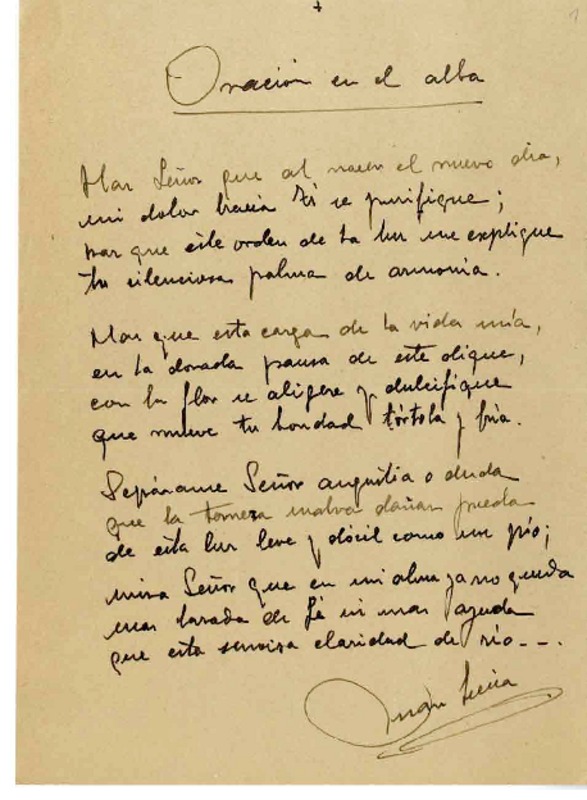 Oración en el alba
Haz Señor que al nacer el nuevo día,
mi dolor hacia Ti se purifique;
haz que este orden de la luz me explique
tu silenciosa palma de armonía.
Haz que esta carga de la vida mía,
en la dorada pausa de este dique,
con la flor se aligere y dulcifique
que mueve tu bondad tórtola y fría.
Sepárame Señor angustia o duda
que la terneza malva dañar pueda
de esta luz leve y dócil como un pío;
mira Señor que en mi alma ya no queda
mas de Fé ni mas ayuda
que esta claridad de río...
Juan Sierra